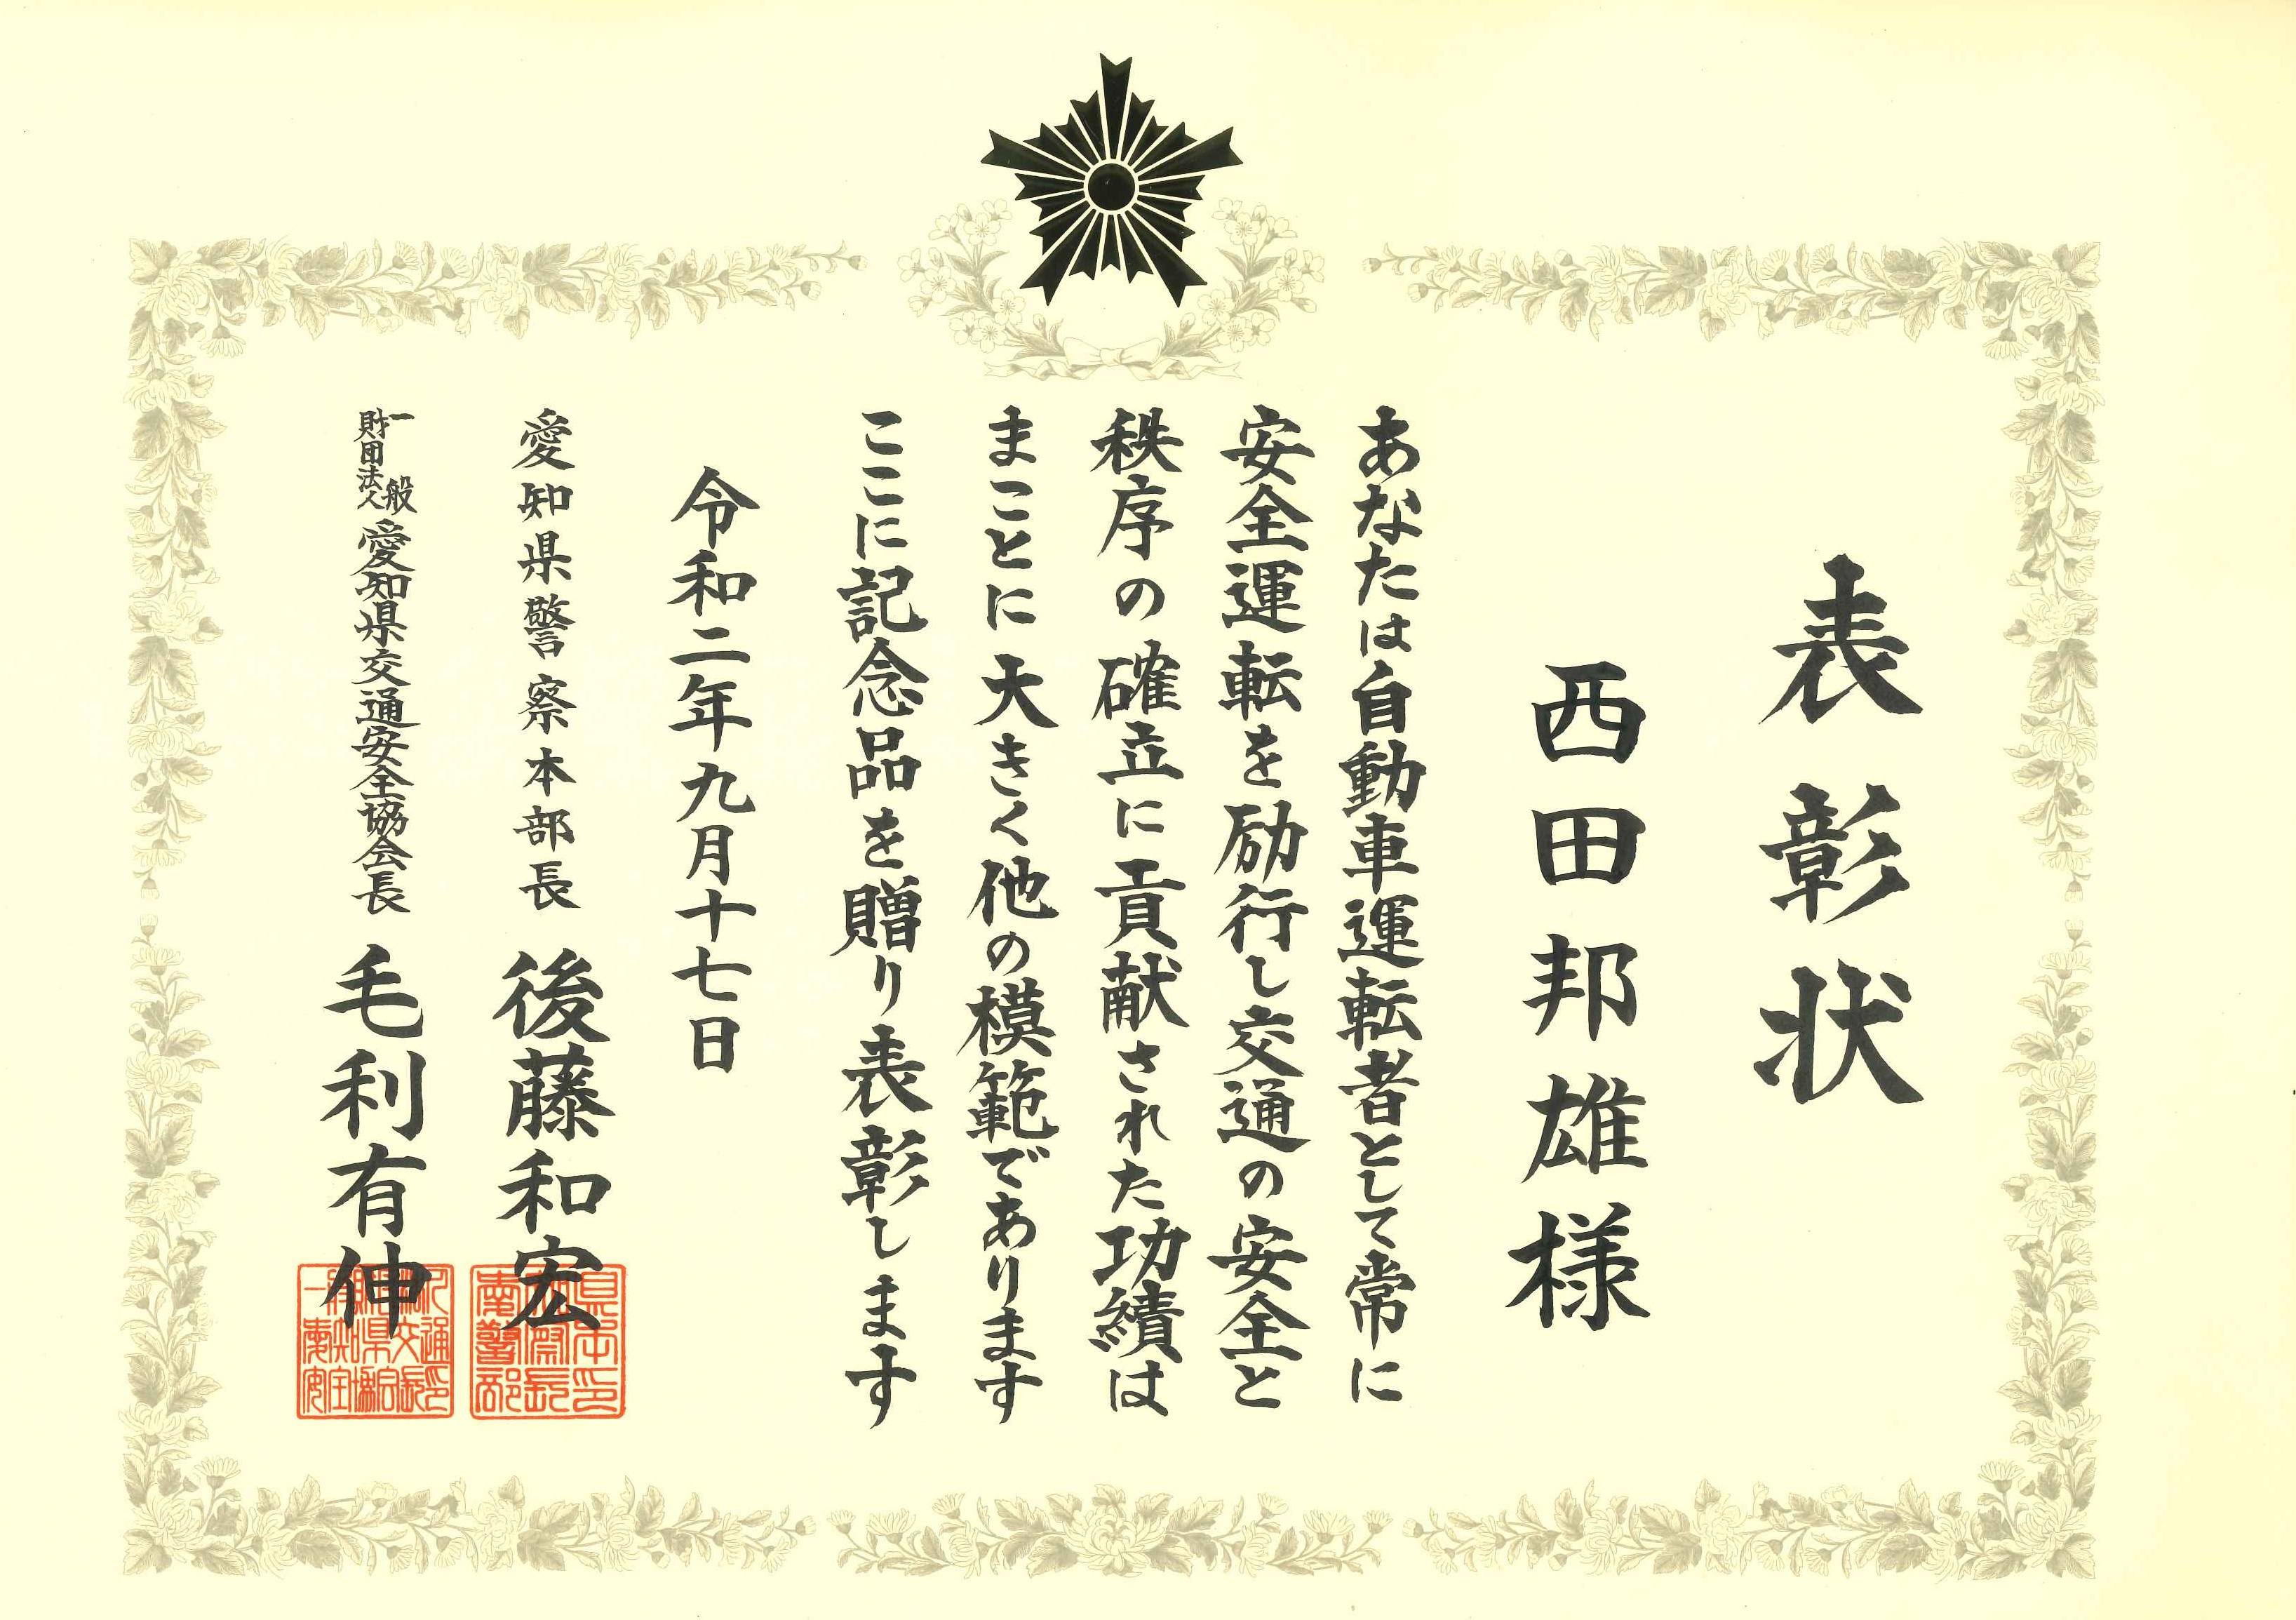 表彰状
西田邦雄様
あなたは自動車運転者として常に
安全運転を励行し交通の安全と
秩序の確立に貢献された功績は
まことに大きく他の模範であります
ここに記念品を贈り表彰します
令和二年九月十七日
愛知県警察本部長 後藤和宏
一般財団法人 愛知県交通安全協会長 毛利有伸